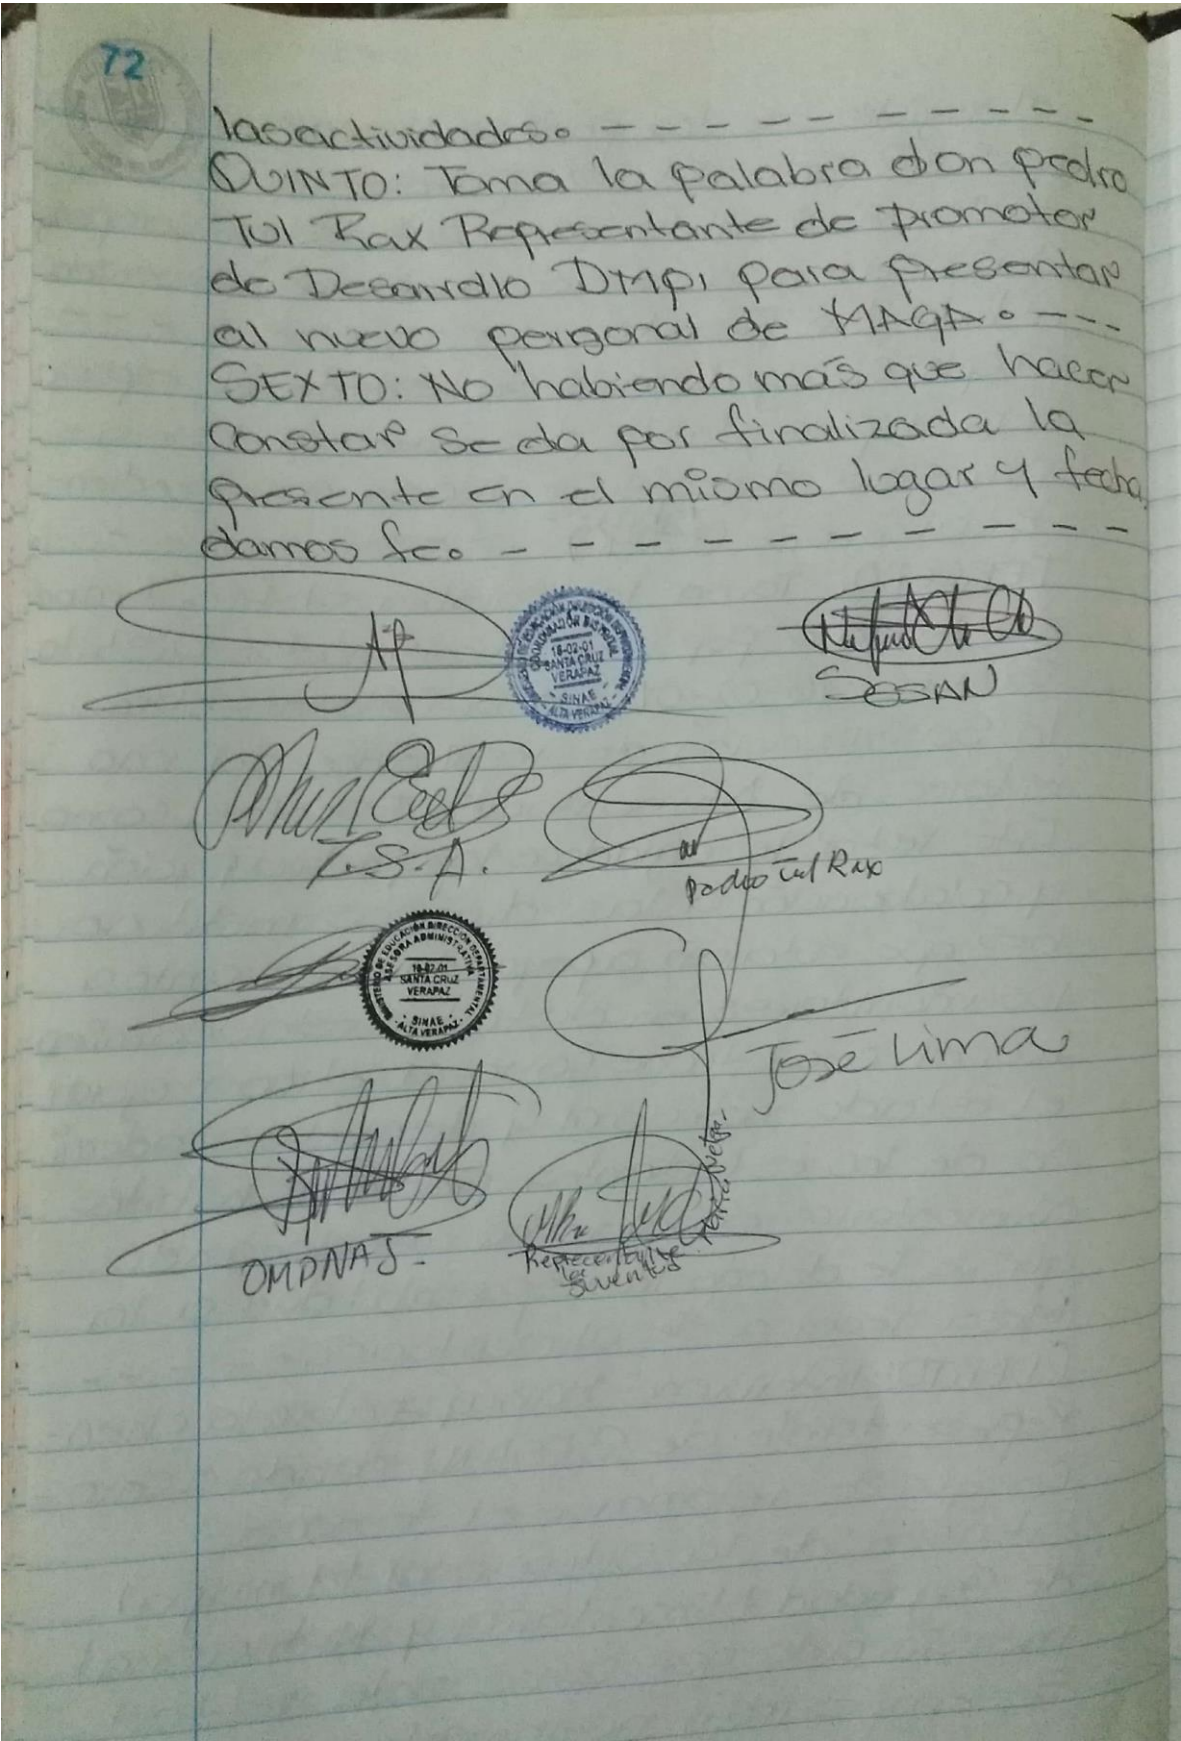 72
las actividades. - - - - - - - - - -
QUINTO: Toma la palabra don pedro
Tul Rax Representante de promotor
de Desarrollo DMP, para presentar
al nuevo personal de MAGA. - - -
SEXTO: No habiendo más que hacer
constar se da por finalizada la
presente en el mismo lugar y fecha
damos fe. - - - - - - - - - -
18-02-01
SANTA CRUZ
VERAPAZ
SINAE
ALTA VERAPAZ
SESAN
T.S.A.
Pedro Tul Rax
MINISTERIO DE EDUCACIÓN DIRECCIÓN DEPARTAMENTAL
ASESORA ADMINISTRATIVA
18-02-01
SANTA CRUZ
VERAPAZ
SINAE
ALTA VERAPAZ
José Lima
OMPNAJ.
Representante
Juventud